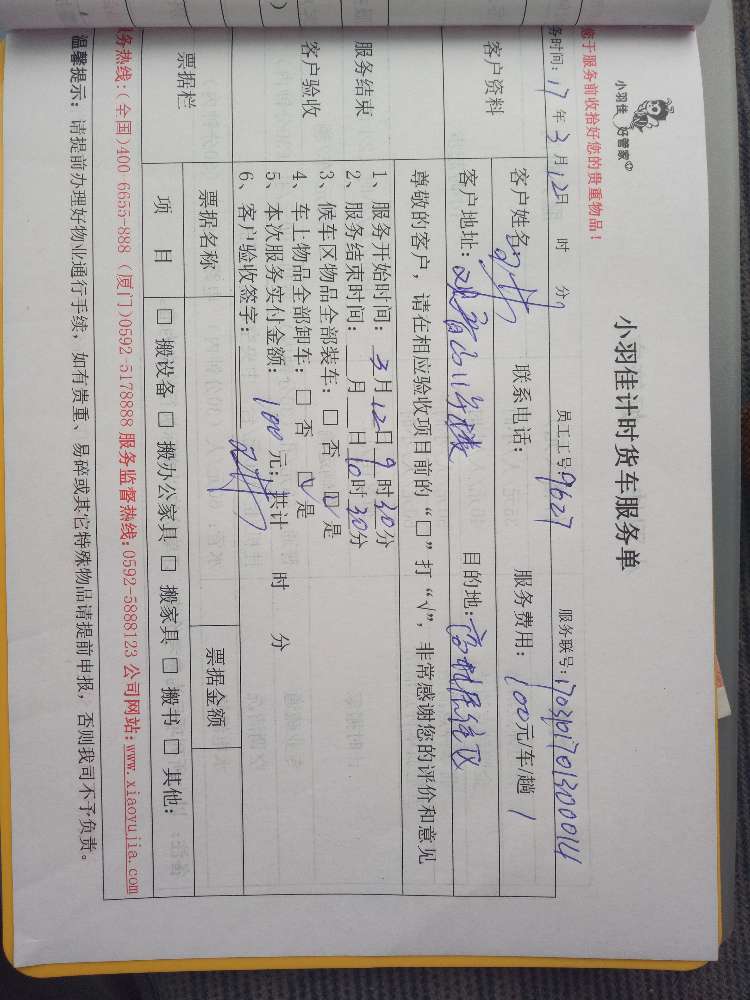 小羽佳 好管家
小羽佳计时货车服务单
您于服务前收拾好您的贵重物品!
务时间: 17 年 3 月 12 日 时 分 员工工号: 9627 服务联号: 170301701300014
客户资料
客户姓名: 联系电话: 服务费用: 100元/车/趟 1
客户地址: 观音山11号楼 目的地:
尊敬的客户, 请在相应验收项目前的“□”打“√”, 非常感谢您的评价和意见
服务结束
客户验收
1、服务开始时间: 3月12日9时30分
2、服务结束时间: 月 日10时30分
3、候车区物品全部装车: □ 否 ☑ 是
4、车上物品全部卸车: □ 否 ☑ 是
5、本次服务实付金额: 100 元; 共计 时 分
6、客户验收签字:
票据栏
票据名称 票据金额
项 目 □ 搬设备 □ 搬办公家具 □ 搬家具 □ 搬书 □ 其他:
务热线:(全国)400 6655-888 (厦门)0592-5178888 服务监督热线:0592-5888123 公司网站:www.xiaoyujia.com
温馨提示: 请提前办理好物业通行手续, 如有贵重、易碎或其它特殊物品请提前申报, 否则我司不予负责。